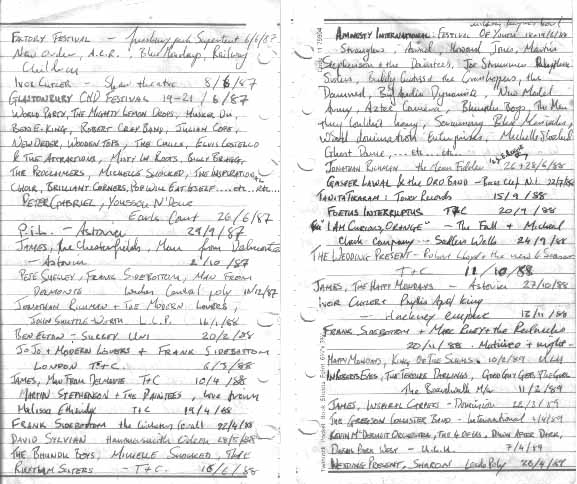 FACTORY FESTIVAL - Finsbury park Supertent 6/6/87
New Order, A.C.R., Blue Mondays, Railway
Children
IVOR CUTLER - Shaw theatre 8/6/87
GLASTONBURY CND FESTIVAL 19-21/6/87
WORLD PARTY, THE MIGHTY LEMON DROPS, HUSKER DU,
BEN E. KING, ROBERT CRAY BAND, JULIAN COPE,
NEW ORDER, WOODEN TOPS, THE CHILLS, ELVIS COSTELLO
& THE ATTRACTIONS, MISTY IN ROOTS, BILLY BRAGG,
THE PROCLAIMERS, MICHELLE SHOCKED, THE INSPIRATIONAL
CHOIR, BRILLIANT CORNERS, POP WILL EAT ITSELF....etc..etc..
PETER GABRIEL, YOUSSOU N'DOUR
Earls Court 26/6/87
P.i.L. - Astoria 29/9/87
JAMES, The Chesterfields, Man from Delmonte
- Astoria 2/10/87
PETE SHELLEY, FRANK SIDEBOTTOM, MAN FROM
DELMONTE London Central poly 10/12/87
JONATHAN RICHMAN & THE MODERN LOVERS,
JOHN SHUTTLEWORTH L.C.P. 16/1/88
BEN ELTON - SURREY UNI 20/2/88
JOJO & MODERN LOVERS & FRANK SIDEBOTTOM
LONDON T&C. 6/3/88
JAMES, MAN FROM DELMONTE T&C 10/4/88
MARTIN STEPHENSON & THE DAINTEES,
Melissa Etheridge T&C 19/4/88
FRANK SIDEBOTTOM 22/4/88
DAVID SYLVIAN Hammersmith Odeon 28/5/88
THE BHUNDU BOYS, MICHELLE SHOCKED,
RHYTHM SISTERS - T&C. 16/6/88
milton keynes bowl
AMNESTY INTERNATIONAL FESTIVAL OF YOUTH 18+19/6/88
Stranglers, Aswad, Howard Jones, Martin
Stephenson & the Daintees, Joe Strummer,
Sisters, Bhundu
Damned, Big Audio Dynamite, New Model
Army, Aztec Camera, Bhundu Boys, The Men
they Couldn't hang, Screaming Blue Messiahs,
World domination Enterprises, Michelle Shocked
Ghost Dance,....etc..etc..
JONATHAN RICHMAN the Mean Fiddler 26+28/6/88
GASPER LAWAL & the ORO BAND - Bass Clef N.1. 22/7/88
TANITA TIKARAM: Tower Records 15/9/88
FOETUS INTERRUPTUS T&C 20/9/88
"I AM CURIOUS, ORANGE" - The Fall & Michael
Clark company - Sadlers Wells 24/9/88
THE WEDDING PRESENT - Robert Lloyd & the new 4 seasons
T&C 11/10/88
JAMES, THE HAPPY MONDAYS - Astoria 27/10/88
IVOR CUTLER & Phyllis April King
- Hackney empire 13/11/88
FRANK SIDEBOTTOM & MARC RILEY & The Creepers
20/11/88. Matinee & night -
HAPPY MONDAYS, KING OF THE SLUMS 10/2/89 ULU
INSPIRAL, THE TERRIBLE DARLINGS,
The Boardwalk M/c 11/2/89
JAMES, INSPIRAL CARPETS - Dominion 22/3/89
THE GREGSON & COLLISTER BAND - International 1/4/89
KEVIN McDERMOTT ORCHESTRA, THE 4 OF US, DAWN AFTER DARK,
DIESEL PARK WEST - U.L.U. 7/4/89
WEDDING PRESENT, SHARON Leeds Poly 28/4/89